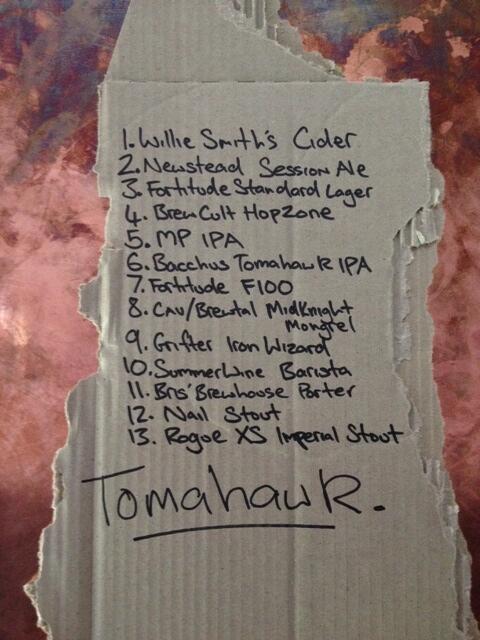 1. Willie Smith's Cider
2. Newstead Session Ale
3. Fortitude Standard Lager
4. BrewCult HopZone
5. MP IPA
6. Bacchus Tomahawk IPA
7. Fortitude F100
8. Cav/Brewtal MidKnight
Mongrel
9. Grifter Iron Wizard
10. SummerWine Barista
11. Bris' Brewhouse Porter
12. Nail Stout
13. Rogue XS Imperial Stout
Tomahawk.